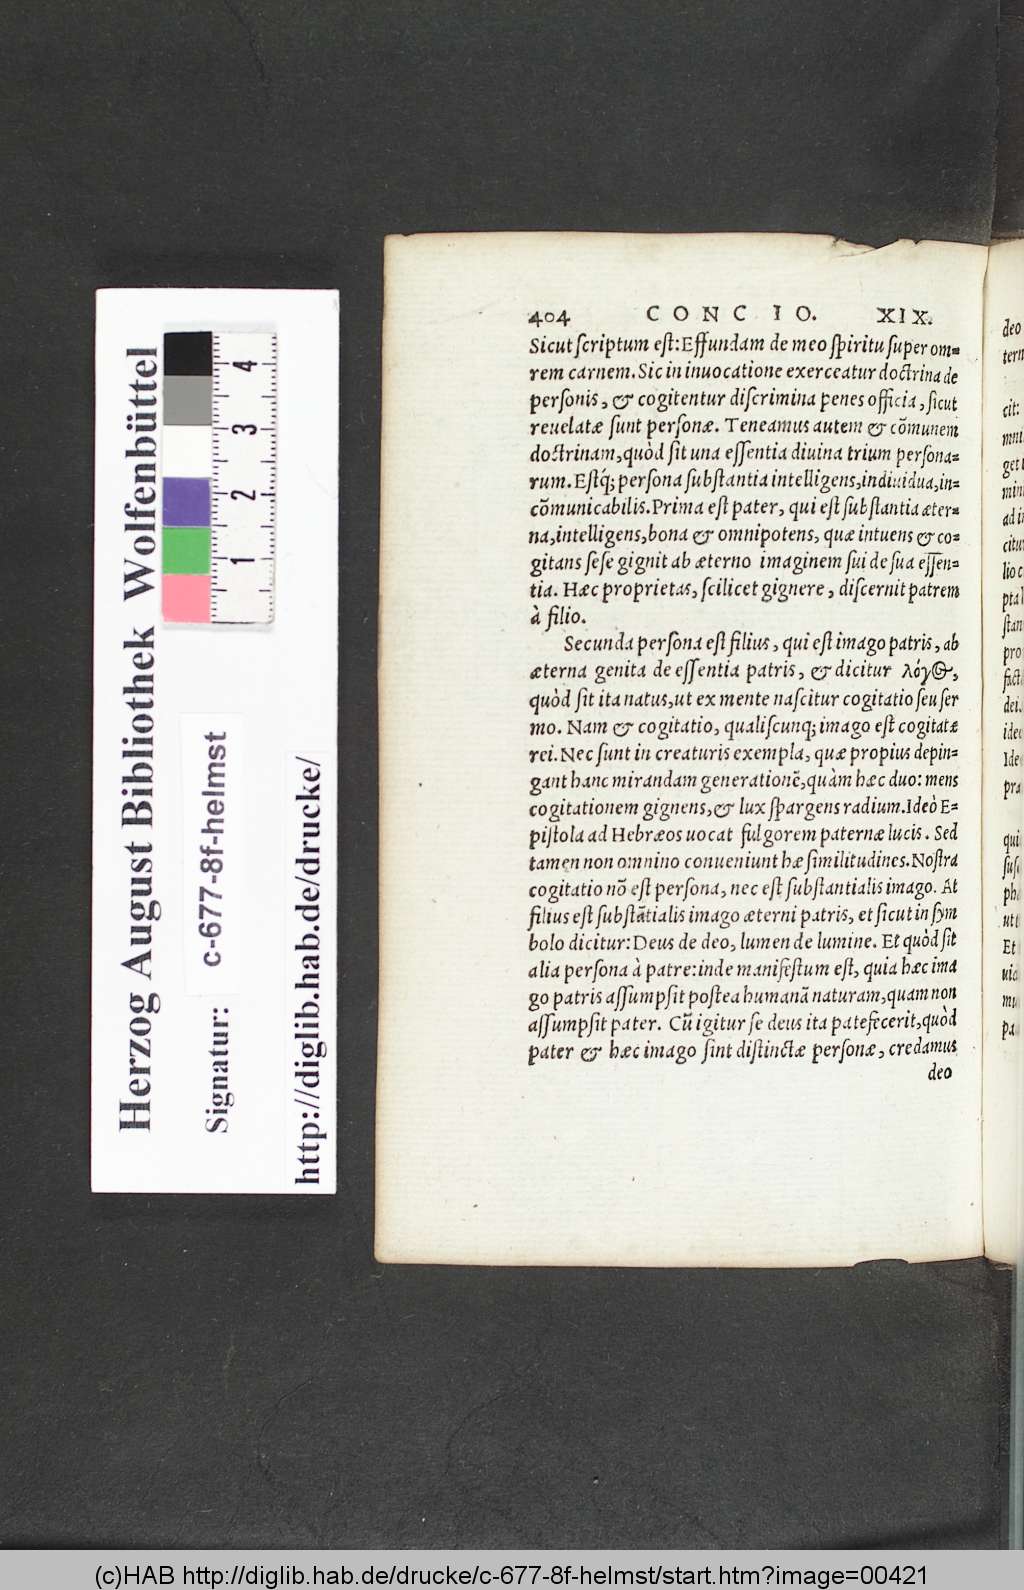 404 CONCIO. XIX.
Sicut scriptum est: Effundam de meo spiritu super om=
rem carnem. Sic in inuocatione exerceatur doctrina de
personis, & cogitentur discrimina penes officia, sicut
reuelatæ sunt personæ. Teneamus autem & cõmunem
doctrinam, quòd sit una essentia diuina trium persona=
rum. Estq́; persona substantia intelligens, indiuidua, in=
cõmunicabilis. Prima est pater, qui est substantia æter=
na, intelligens, bona & omnipotens, quæ intuens & co=
gitans sese gignit ab æterno imaginem sui de sua essen=
tia. Hæc proprietas, scilicet gignere, discernit patrem
à filio.
Secunda persona est filius, qui est imago patris, ab
æterna genita de essentia patris, & dicitur λόγος,
quòd sit ita natus, ut ex mente nascitur cogitatio seu ser
mo. Nam & cogitatio, qualiscunq; imago est cogitatæ
rei. Nec sunt in creaturis exempla, quæ propius depin=
gant hanc mirandam generationẽ, quàm hæc duo: mens
cogitationem gignens, & lux spargens radium. Ideò E=
pistola ad Hebræos uocat fulgorem paternæ lucis. Sed
tamen non omnino conueniunt hæ similitudines. Nostra
cogitatio nõ est persona, nec est substantialis imago. At
filius est substãtialis imago æterni patris, et sicut in sym
bolo dicitur: Deus de deo, lumen de lumine. Et quòd sit
alia persona à patre: inde manifestum est, quia hæc ima
go patris assumpsit postea humanã naturam, quam non
assumpsit pater. Cũ igitur se deus ita patefecerit, quòd
pater & hæc imago sint distinctæ personæ, credamus
deo
Herzog August Bibliothek Wolfenbüttel
Signatur: c-677-8f-helmst
http://diglib.hab.de/drucke/
1 2 3 4
(c)HAB http://diglib.hab.de/drucke/c-677-8f-helmst/start.htm?image=00421